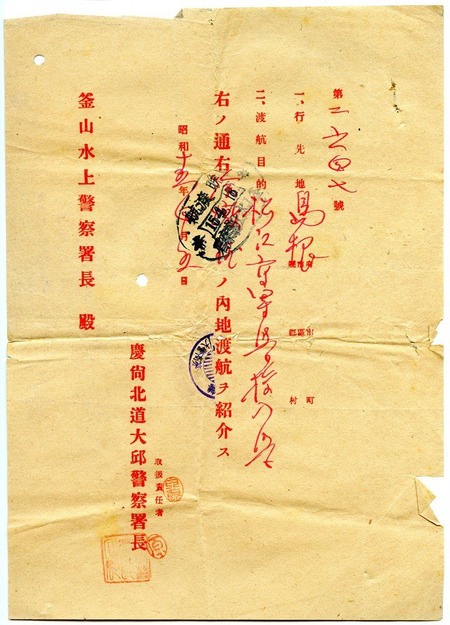 第二六四七號
一、行先地 島根 府縣 市區郡 町村
二、渡航目的 松江高等学校入学
右ノ通右ノ內地渡航ヲ紹介ス
昭和十五年月五日
慶尙北道大邱警察署長
取扱責任者
釜山水上警察署長 殿